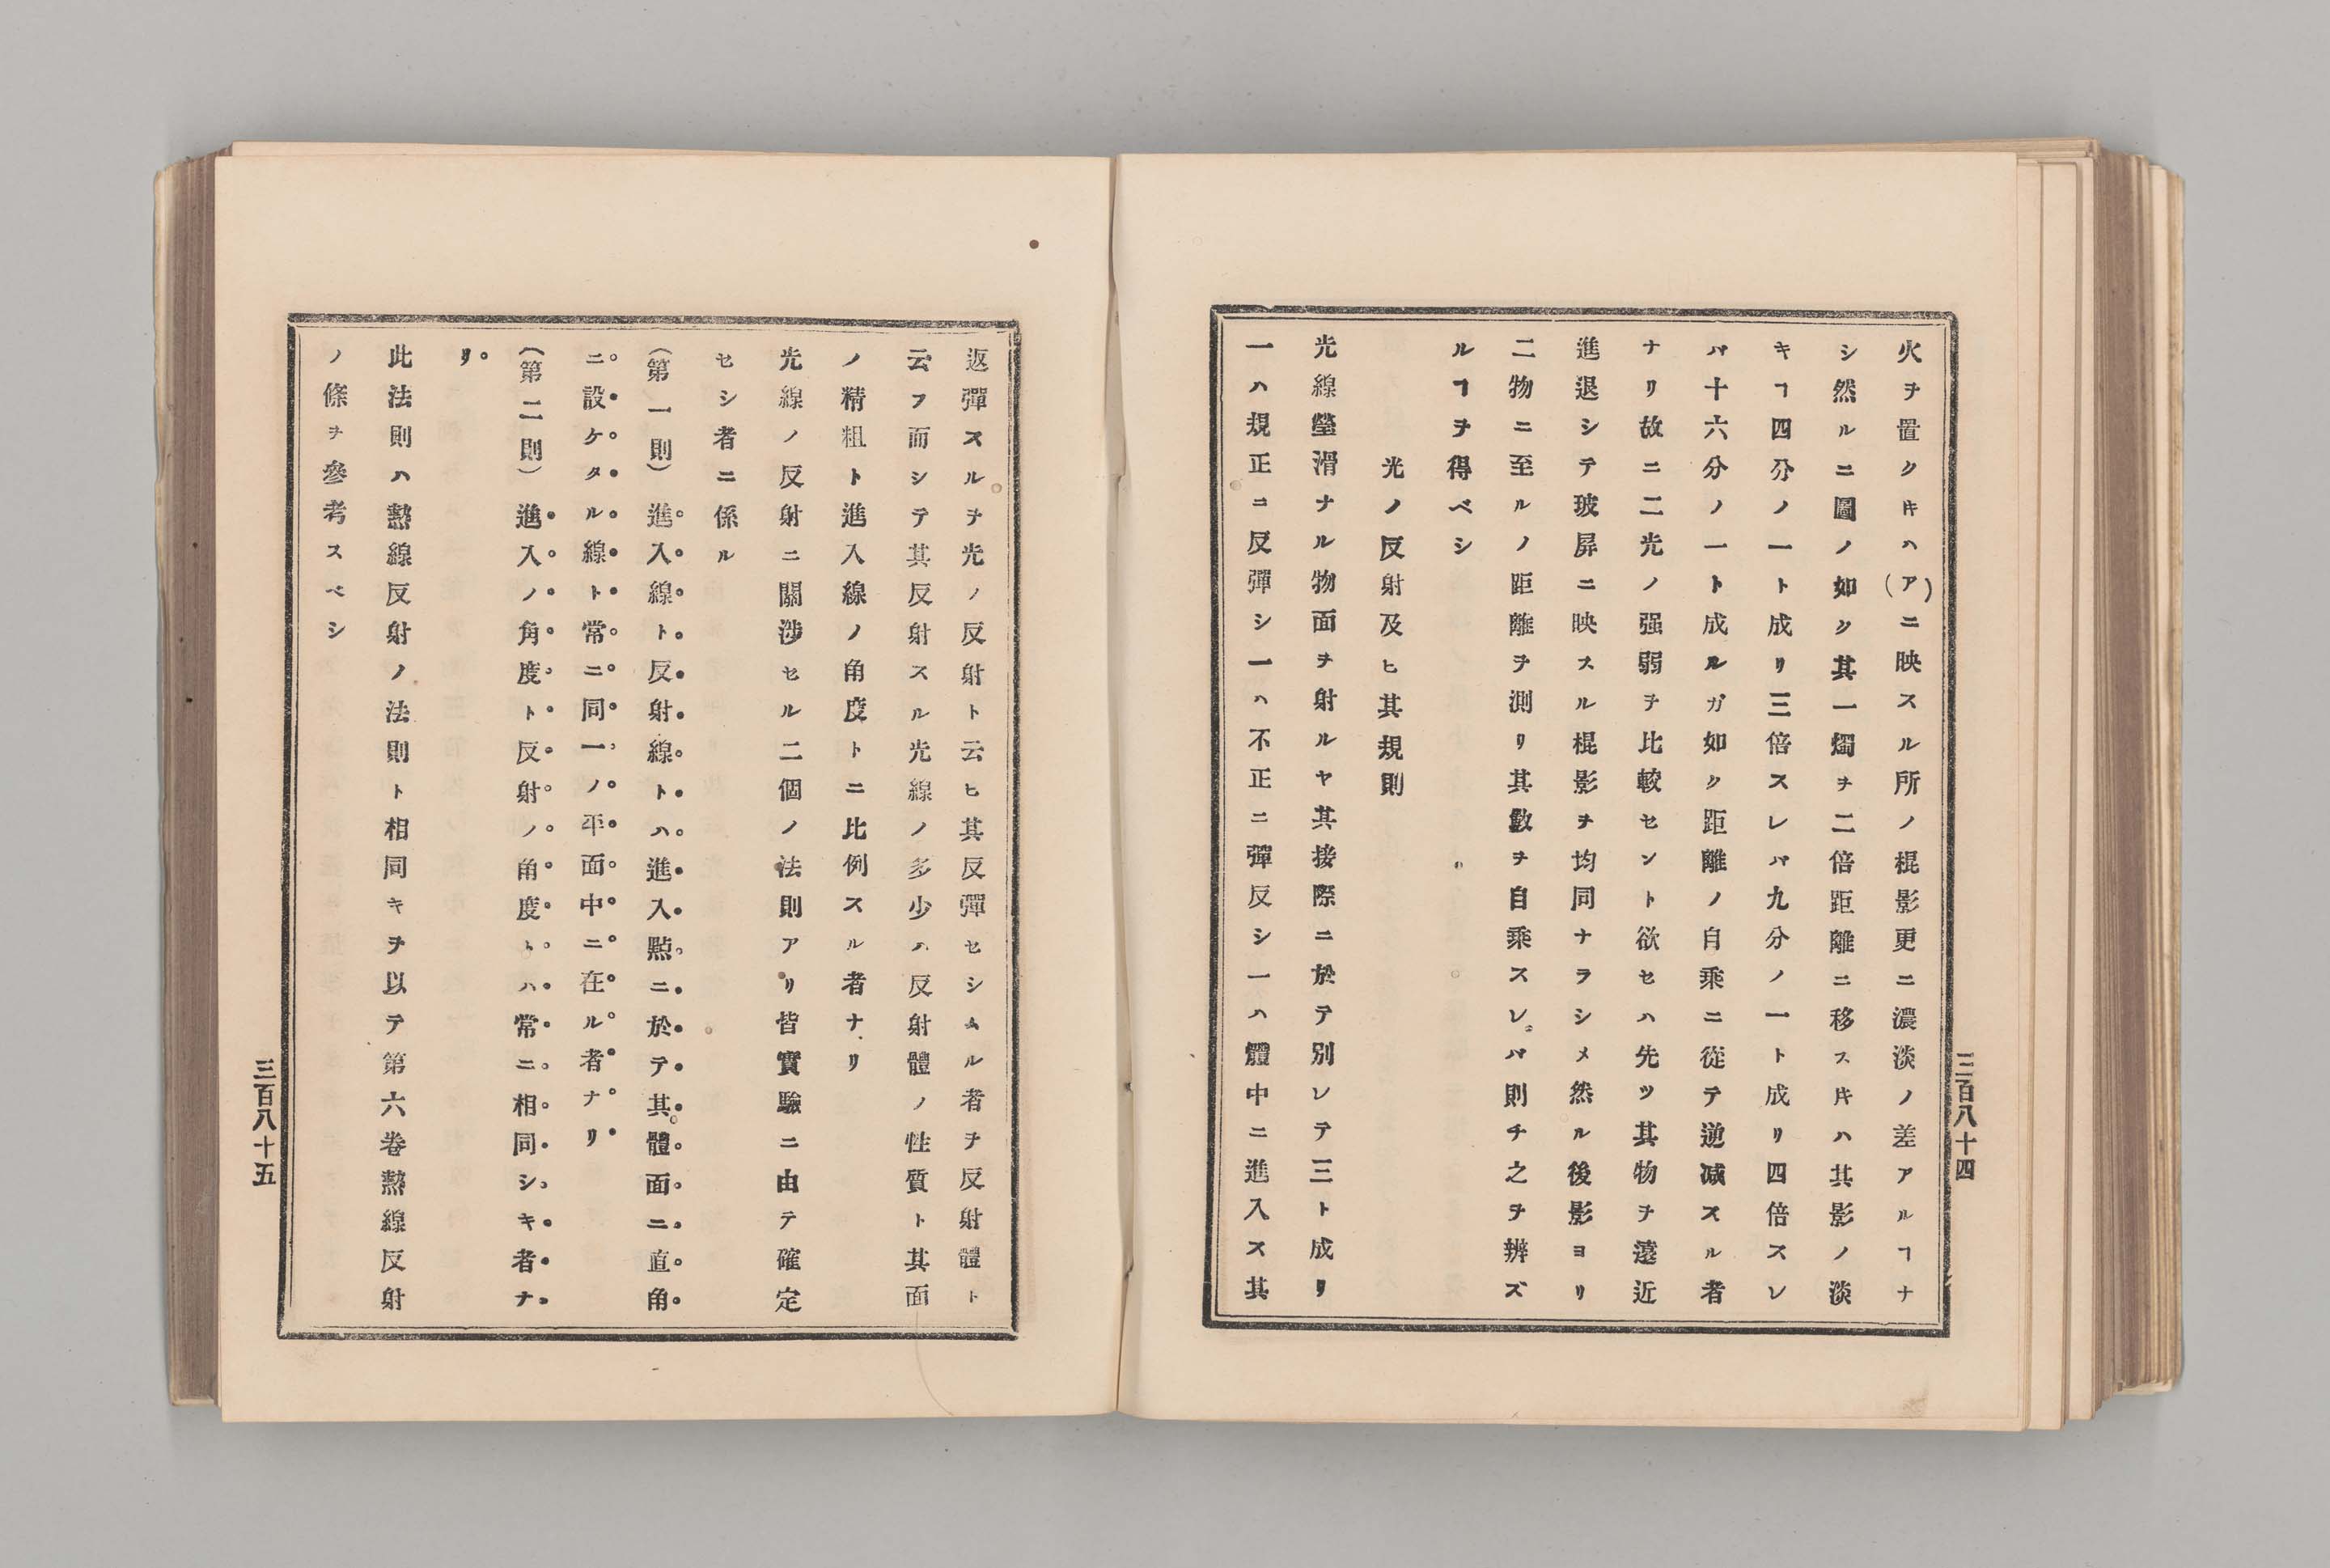 火ヲ置クキハ(ア)ニ映スル所ノ棍影更ニ濃淡ノ差アルヿナ
シ然ルニ圖ノ如ク其一燭ヲ二倍距離ニ移スキハ其影ノ淡
キヿ四分ノ一ト成リ三倍スレバ九分ノ一ト成リ四倍スレ
バ十六分ノ一ト成ルガ如ク距離ノ自乘ニ從テ遞减スル者
ナリ故ニ二光ノ强弱ヲ比較セント欲セハ先ツ其物ヲ遠近
進退シテ玻屏ニ映スル棍影ヲ均同ナラシメ然ル後影ヨリ
二物ニ至ルノ距離ヲ測リ其數ヲ自乘スレバ則チ之ヲ辨ズ
ルヿヲ得ベシ
光ノ反射及ヒ其規則
光線瑩滑ナル物面ヲ射ルヤ其接際ニ於テ別レテ三ト成リ
一ハ規正ニ反彈シ一ハ不正ニ彈反シ一ハ體中ニ進入ス其
三百八十四
返彈スルヲ光ノ反射ト云ヒ其反彈セシムル者ヲ反射體ト
云フ而シテ其反射スル光線ノ多少ハ反射體ノ性質ト其面
ノ精粗ト進入線ノ角度トニ比例スル者ナリ
光線ノ反射ニ關渉セル二個ノ法則アリ皆實驗ニ由テ確定
セシ者ニ係ル
(第一則)進入線ト反射線トハ進入㸃ニ於テ其體面ニ直角
ニ設ケタル線ト常ニ同一ノ平面中ニ在ル者ナリ
(第二則)進入ノ角度ト反射ノ角度トハ常ニ相同シキ者ナ
リ
此法則ハ熱線反射ノ法則ト相同キヲ以テ第六卷熱線反射
ノ條ヲ參考スベシ
三百八十五